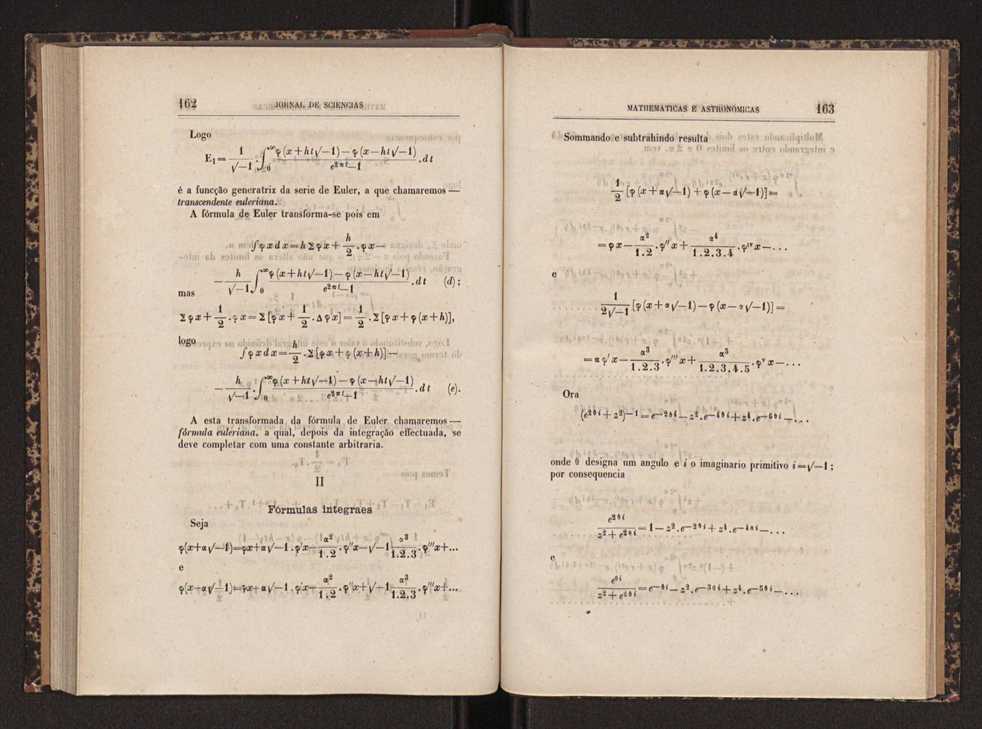 162 JORNAL DE SCIENCIAS
Logo
E₁ = 1/√−1 . ∫₀^∞ φ(x+ht√−1)−φ(x−ht√−1)/e^{2πt}−1 . dt
é a funcção generatriz da serie de Euler, a que chamaremos —
transcendente euleriana.
A fórmula de Euler transforma-se pois em
∫φxdx = hΣφx + h/2 . φx −
− h/√−1 ∫₀^∞ φ(x+ht√−1)−φ(x−ht√−1)/e^{2πt}−1 . dt (d);
mas
Σφx + 1/2 . φx = Σ[φx + 1/2 . Δφx] = 1/2 . Σ[φx + φ(x+h)],
logo
∫φxdx = h/2 . Σ[φx + φ(x+h)] −
− h/√−1 . ∫₀^∞ φ(x+ht√−1)−φ(x−ht√−1)/e^{2πt}−1 . dt (e).
A esta transformada da fórmula de Euler chamaremos —
fórmula euleriana, a qual, depois da integração effectuada, se
deve completar com uma constante arbitraria.
II
Fórmulas integraes
Seja
φ(x+α√−1)=φx+α√−1.φ'x−α²/1.2.φ''x−√−1 α³/1.2.3.φ'''x+...
e
φ(x−α√−1)=φx−α√−1.φ'x−α²/1.2.φ''x+√−1 α³/1.2.3.φ'''x+...
MATHEMATICAS E ASTRONOMICAS 163
Sommando e subtrahindo resulta
1/2 [φ(x+α√−1)+φ(x−α√−1)] =
= φx − α²/1.2 . φ''x + α⁴/1.2.3.4 . φ^{IV}x − ...
e
1/2√−1 [φ(x+α√−1)−φ(x−α√−1)] =
= αφ'x − α³/1.2.3 . φ'''x + α³/1.2.3.4.5 . φ^{v}x − ...
Ora
(e^{2θi}+z²)^{−1} = e^{−2θi} − z².e^{−4θi} + z⁴.e^{−6θi} − ...
onde θ designa um angulo e i o imaginario primitivo i=√−1;
por consequencia
e^{2θi}/z²+e^{2θi} = 1 − z².e^{−2θi} + z⁴.e^{−4θi} − ...
e
e^{θi}/z²+e^{2θi} = e^{−θi} − z².e^{−3θi} + z⁴.e^{−5θi} − ...